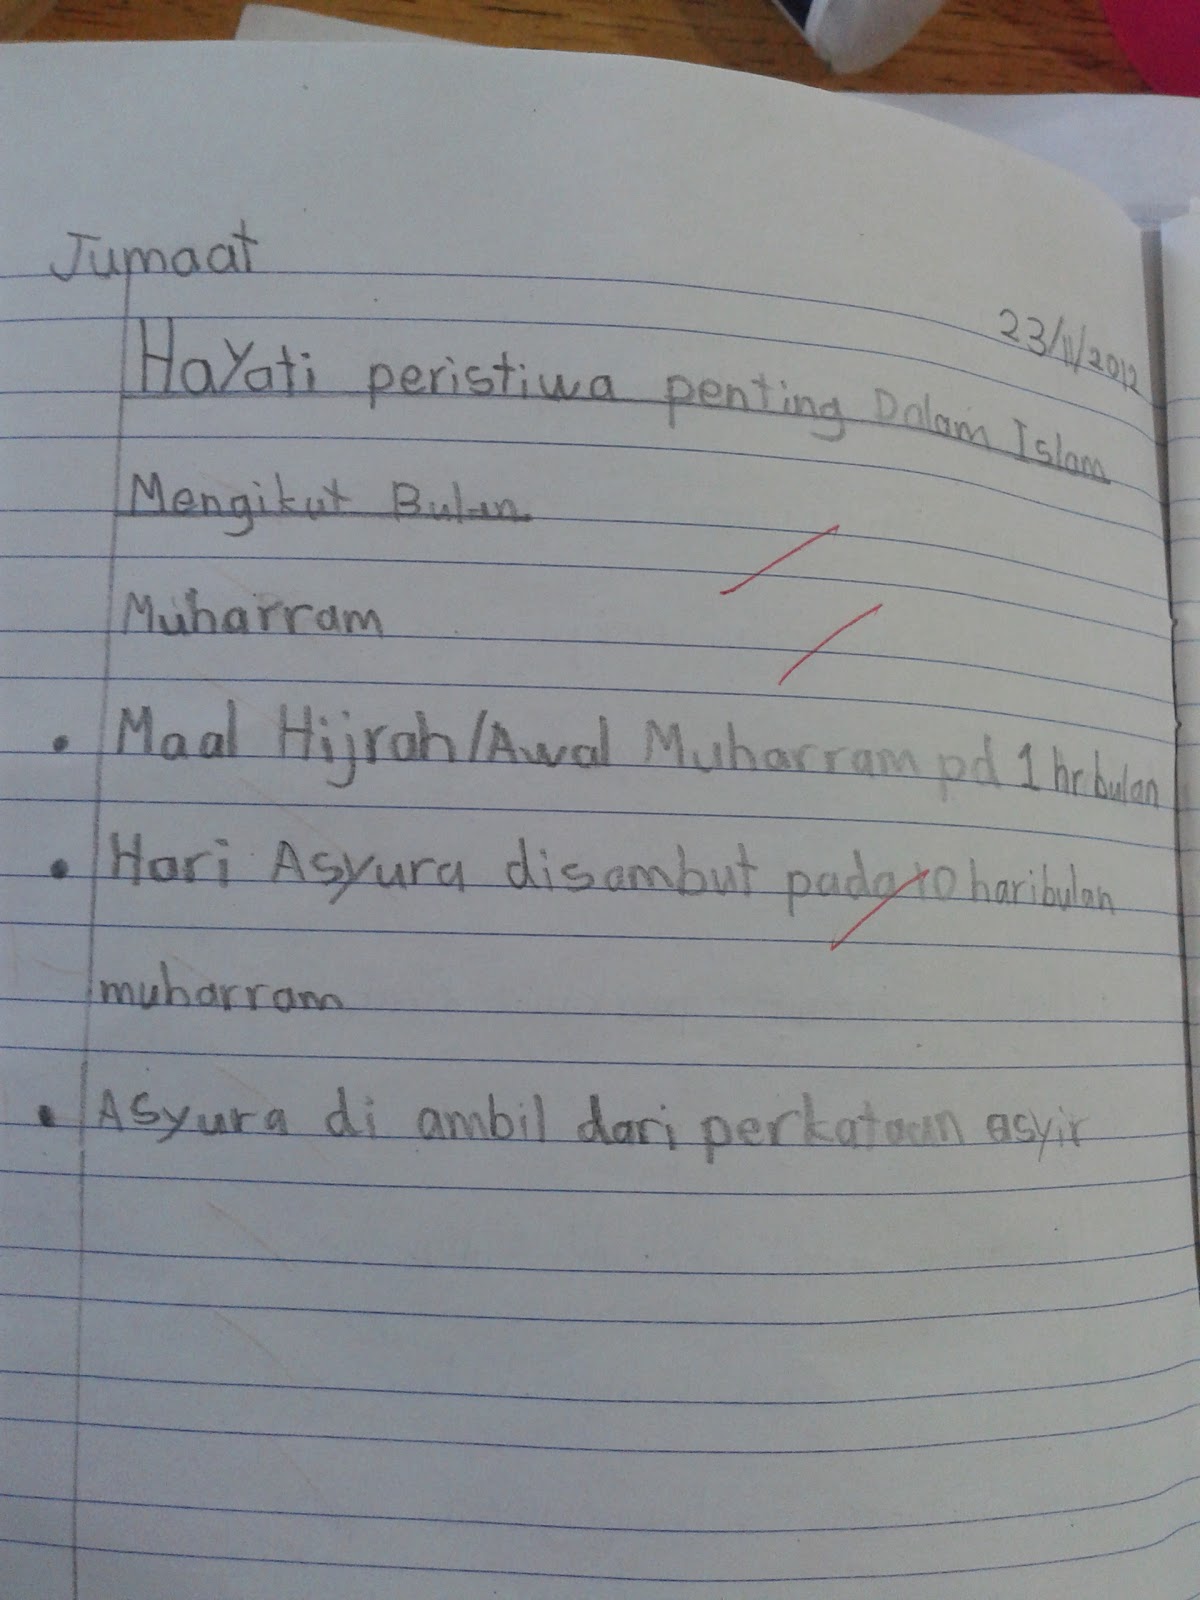 Jumaat
23/11/2012
Hayati peristiwa penting Dalam Islam
Mengikut Bulan
Muharram
• Maal Hijrah/Awal Muharram pd 1 hr bulan
• Hari Asyura disambut pada 10 haribulan
muharram
• Asyura di ambil dari perkataan asyir